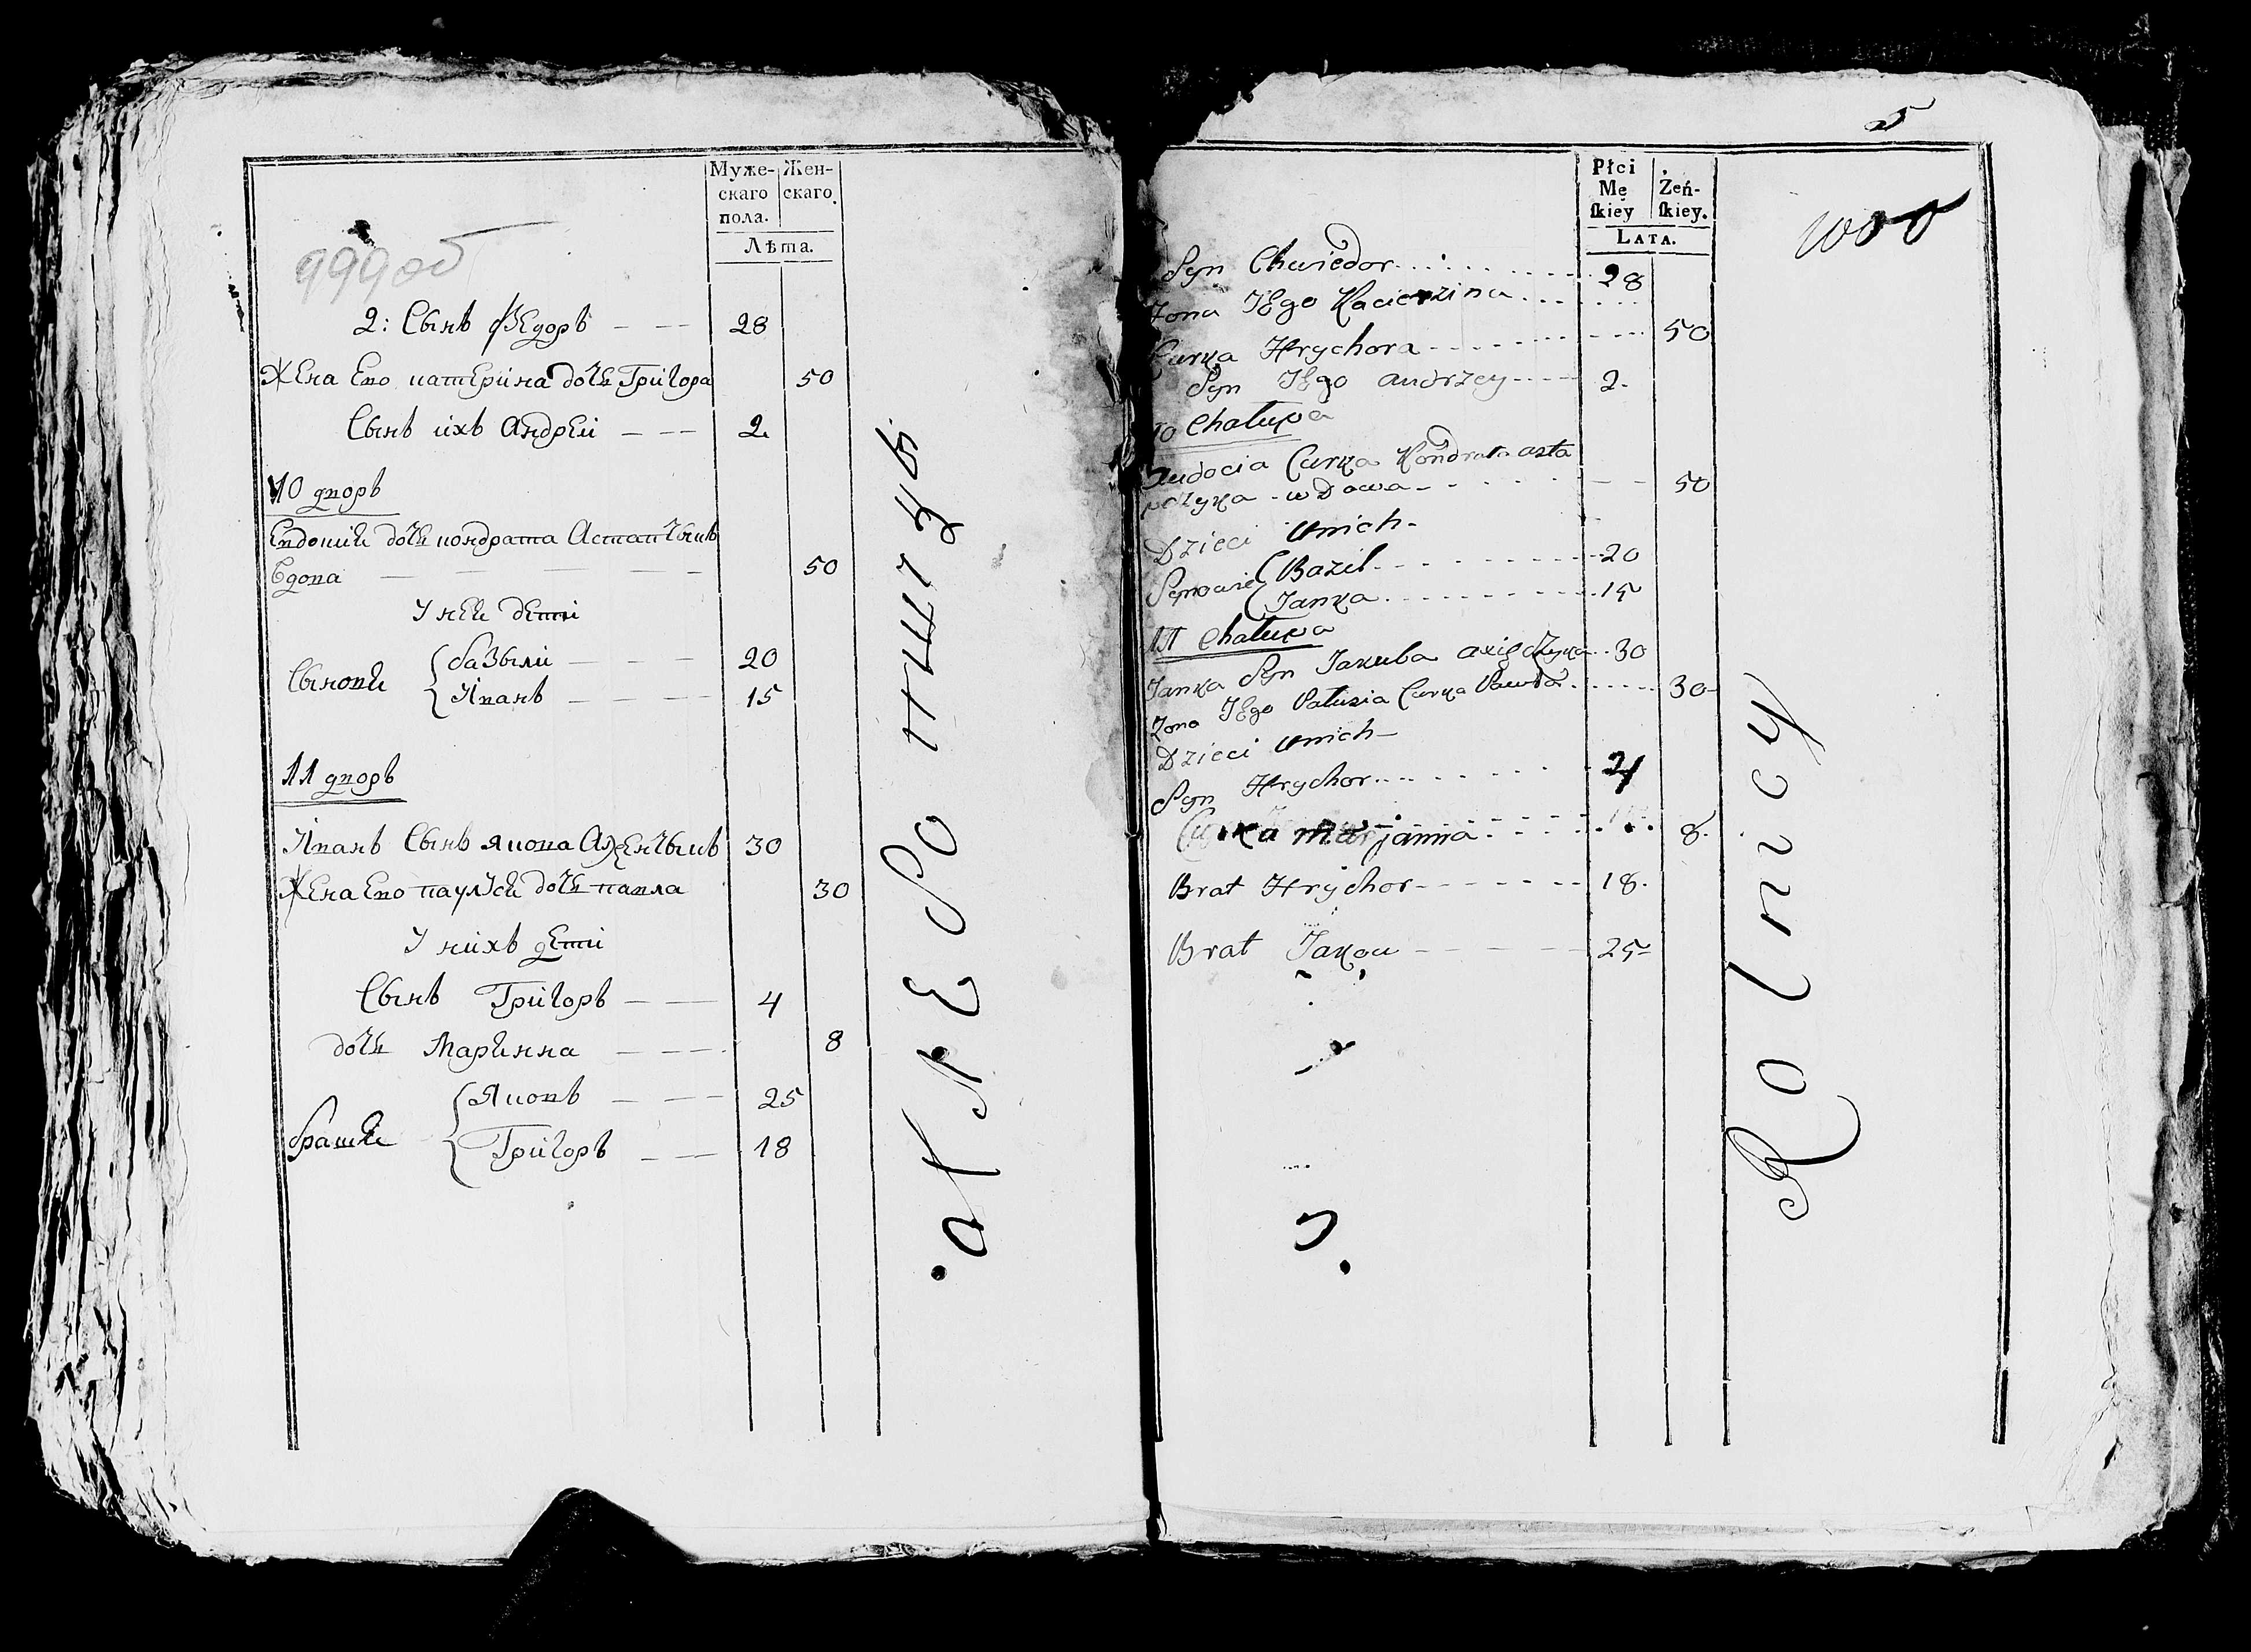 999об
Муже-
скаго
пола.
Жен-
скаго.
Лѣта.
2: Сынъ Федоръ — — — 28
Жена Ево Катерина дочь Григора 50
Сынъ ихъ Андрей — — — 2
10 дворъ
Евдокия дочь Кондрата Астапчыкъ
Вдова — — — — 50
У неи дети
Сынови { базыли — — — 20
Иванъ — — — 15
11 дворъ
Иванъ Сынъ Якова 30
Жена Ево Паулуся дочь Павла 30
У нихъ дети
Сынъ Григоръ — — 4
дочь Марянна — — — 8
братя { Яковъ — — — 25
Григоръ — — 18
5
1000
Płci
Mę
ſkiey
Żeń-
ſkiey.
LATA.
Syn Chwiedor 28
Zona JEgo Kacierzina
Curka Hrychora 50
Syn JEgo andrzey 2.
10 Chałupa
Audocia Curka Kondrata asta
pczyka - wdowa 50
Dzieci unich -
Synowie { Bazil 20
Janka 15
11 Chałupa
Janka Syn Jakuba 30
Zona JEgo Palusia Curka Pawła 30
Dzieci unich -
Syn Hrychor 4
Curka marjanna 8.
Brat Hrychor 18.
Brat Jakou 25
Rolnicy